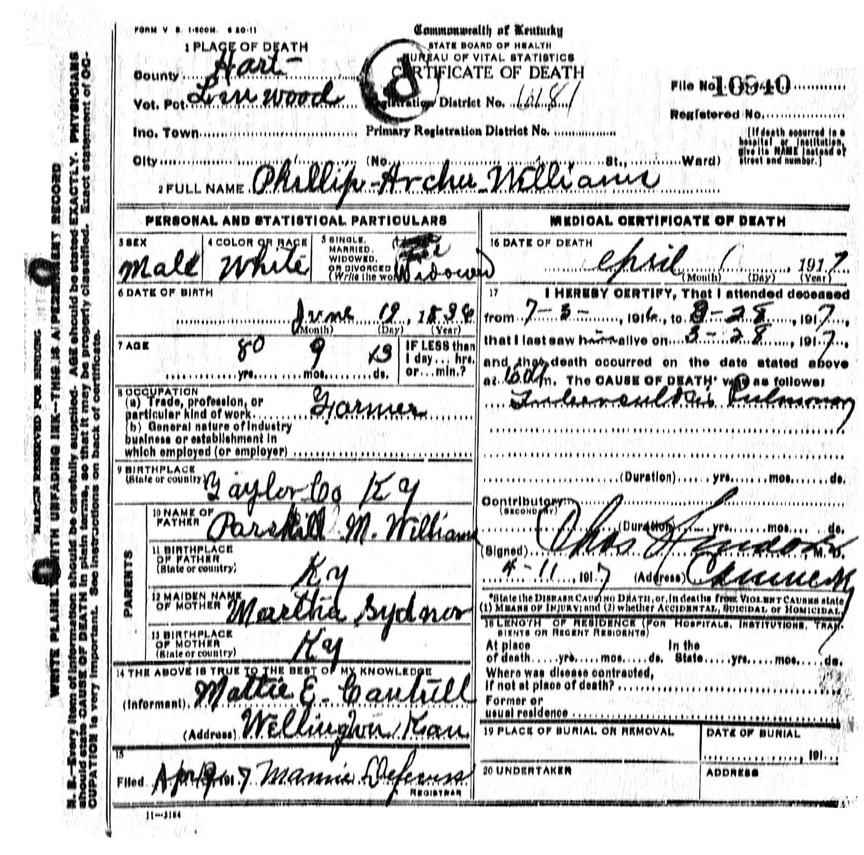 FORM V. S. 1-500M. 6 20-11
Commonwealth of Kentucky
STATE BOARD OF HEALTH
BUREAU OF VITAL STATISTICS
CERTIFICATE OF DEATH
1 PLACE OF DEATH
County Hart
Vot. Pct. Linwood
Registration District No.
File No. 10940
Registered No.
Inc. Town
Primary Registration District No.
[If death occurred in a
hospital or institution,
give its NAME instead of
street and number.]
City (No. St., Ward)
2 FULL NAME Phillip Archu Williams
PERSONAL AND STATISTICAL PARTICULARS
3 SEX
Male
4 COLOR OR RACE
White
5 SINGLE,
MARRIED,
WIDOWED,
OR DIVORCED
(Write the word)
Widowed
6 DATE OF BIRTH
June 19, 1836
(Month) (Day) (Year)
7 AGE
80 yrs. 9 mos. 13 ds.
IF LESS than
1 day... hrs.
or... min.?
8 OCCUPATION
(a) Trade, profession, or
particular kind of work Farmer
(b) General nature of industry
business or establishment in
which employed (or employer)
9 BIRTHPLACE
(State or country) Taylor Co Ky
PARENTS
10 NAME OF
FATHER M. Williams
11 BIRTHPLACE
OF FATHER
(State or country) Ky
12 MAIDEN NAME
OF MOTHER Martha Sydnor
13 BIRTHPLACE
OF MOTHER
(State or country) Ky
14 THE ABOVE IS TRUE TO THE BEST OF MY KNOWLEDGE
(Informant) Mattie E. Cantrill
(Address) Wellington Kan
15
Filed Apr 1917 Mamie
REGISTRAR
11-3184
MEDICAL CERTIFICATE OF DEATH
16 DATE OF DEATH
April 1, 1917
(Month) (Day) (Year)
17 I HEREBY CERTIFY, That I attended deceased
from 7-3-, 1916, to 3-28, 1917,
that I last saw him alive on 3-28, 1917,
and that death occurred on the date stated above
at m. The CAUSE OF DEATH* was as follows:
Tuberculosis Pulmonary
(Duration) yrs. mos. ds.
Contributory
(SECONDARY)
(Duration) yrs. mos. ds.
(Signed) Chas M. D.
4-11, 1917 (Address)
*State the DISEASE CAUSING DEATH, or, in deaths from VIOLENT CAUSES state
(1) MEANS OF INJURY; and (2) whether ACCIDENTAL, SUICIDAL or HOMICIDAL.
18 LENGTH OF RESIDENCE (FOR HOSPITALS, INSTITUTIONS, TRANSIENTS
OR RECENT RESIDENTS)
At place
of death yrs. mos. ds.
In the
State yrs. mos. ds.
Where was disease contracted,
if not at place of death?
Former or
usual residence
19 PLACE OF BURIAL OR REMOVAL
DATE OF BURIAL
191
20 UNDERTAKER
ADDRESS
MARGIN RESERVED FOR BINDING
WRITE PLAINLY WITH UNFADING INK—THIS IS A PERMANENT RECORD
N. B.—Every item of information should be carefully supplied. AGE should be stated EXACTLY. PHYSICIANS
should state CAUSE OF DEATH in plain terms, so that it may be properly classified. Exact statement of OC-
CUPATION is very important. See instructions on back of certificate.